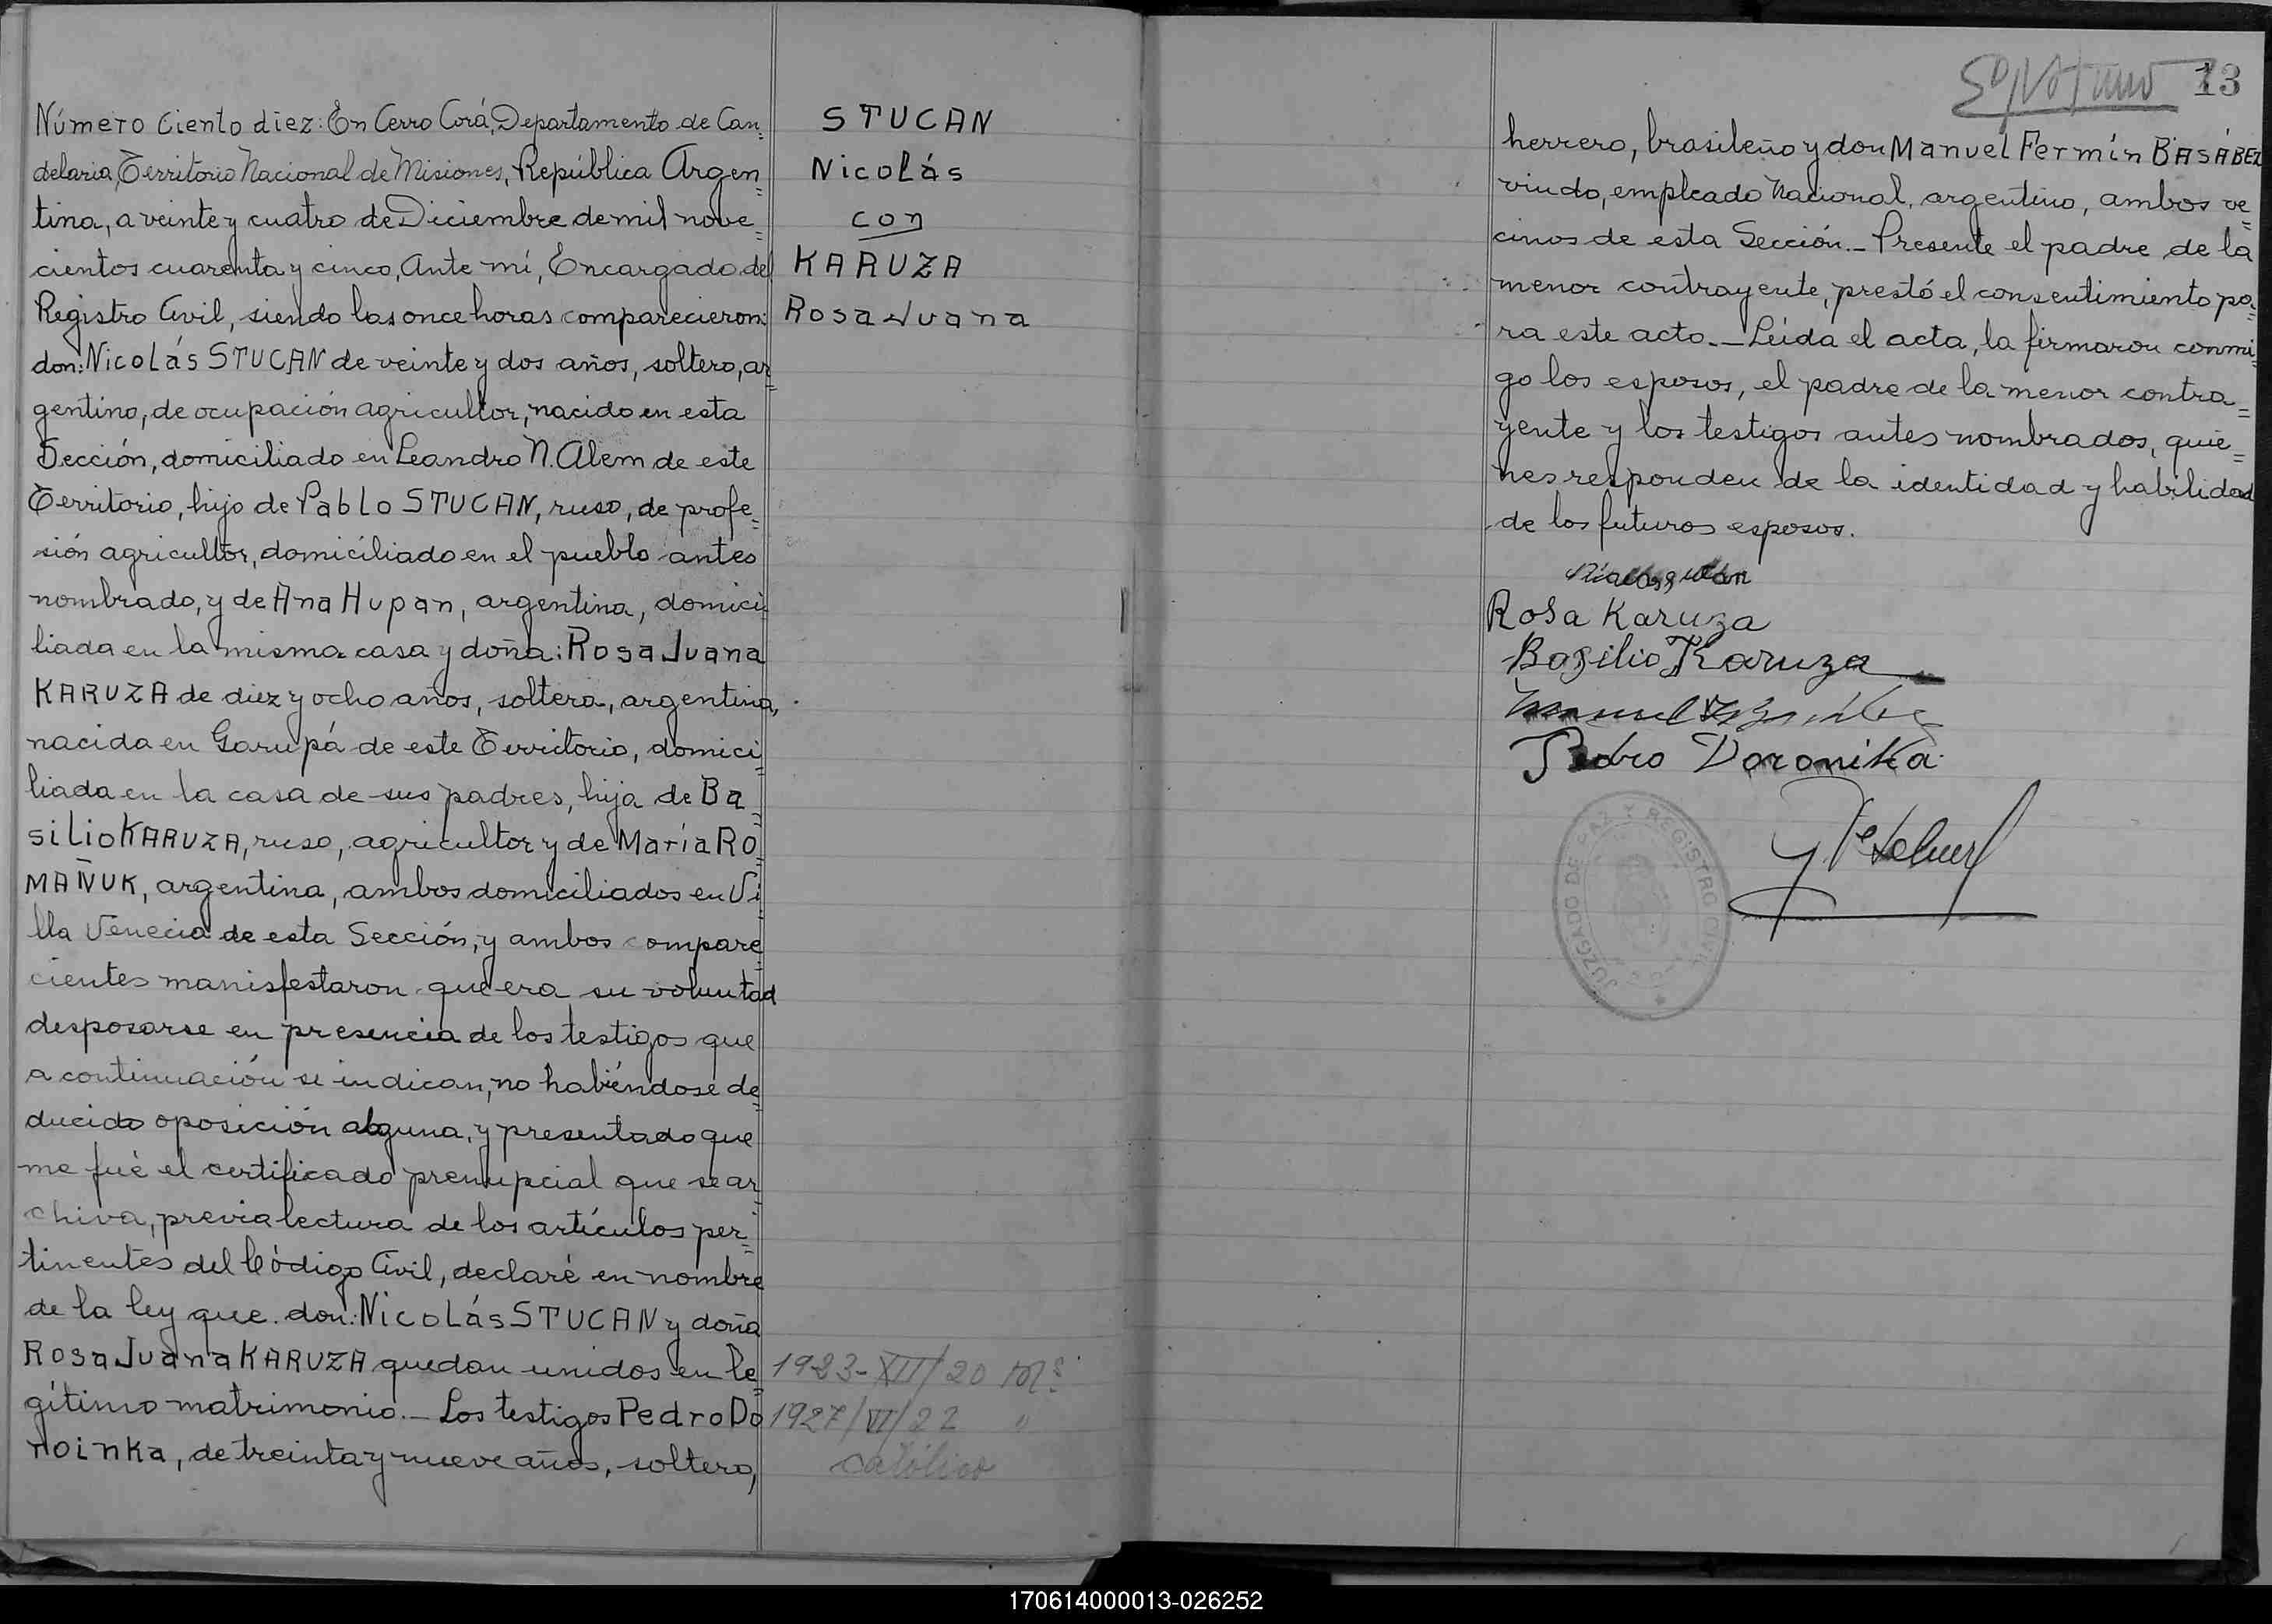 Número Ciento diez: En Cerro Corá, Departamento de Can=
delaria, Territorio Nacional de Misiones, República Argen=
tina, a veinte y cuatro de Diciembre de mil nove=
cientos cuarenta y cinco, Ante mí, Encargado del
Registro Civil, siendo las once horas comparecieron:
don: Nicolás STUCAN de veinte y dos años, soltero, ar=
gentino, de ocupación agricultor, nacido en esta
Sección, domiciliado en Leandro N. Alem de este
Territorio, hijo de Pablo STUCAN, ruso, de profe=
sión agricultor, domiciliado en el pueblo antes
nombrado, y de Ana Hupan, argentina, domici=
liada en la misma casa y doña: Rosa Juana
KARUZA de diez y ocho años, soltera, argentina,
nacida en Garupá de este Territorio, domici=
liada en la casa de sus padres, hija de Ba=
silio KARUZA, ruso, agricultor y de María RO=
MAÑUK, argentina, ambos domiciliados en Vi=
lla Venecia de esta Sección, y ambos compare=
cientes manisfestaron que era su voluntad
desposarse en presencia de los testigos que
a continuación se indican, no habiéndose de=
ducido oposición alguna, y presentado que
me fué el certificado prenupcial que se ar=
chiva, previa lectura de los artículos per=
tinentes del Código Civil, declaré en nombre
de la ley que don: Nicolás STUCAN y doña
Rosa Juana KARUZA quedan unidos en le=
gítimo matrimonio.- Los testigos Pedro Do
noinka, de treinta y nueve años, soltero,
STUCAN
Nicolás
con
KARUZA
Rosa Juana
1923-XII/20 Ms.
1927/VI/22 "
católico
13
herrero, brasileño y don Manuel Fermín BASÁBEZ
viudo, empleado Nacional, argentino, ambos ve=
cinos de esta Sección.- Presente el padre de la
menor contrayente, prestó el consentimiento pa=
ra este acto.- Leída el acta, la firmaron conmi=
go los esposos, el padre de la menor contra=
yente y los testigos antes nombrados, quie=
nes responden de la identidad y habilidad
de los futuros esposos.
Rosa Karuza
Basilio Karuza
Pedro Doronika
JUZGADO DE PAZ Y REGISTRO CIVIL
170614000013-026252